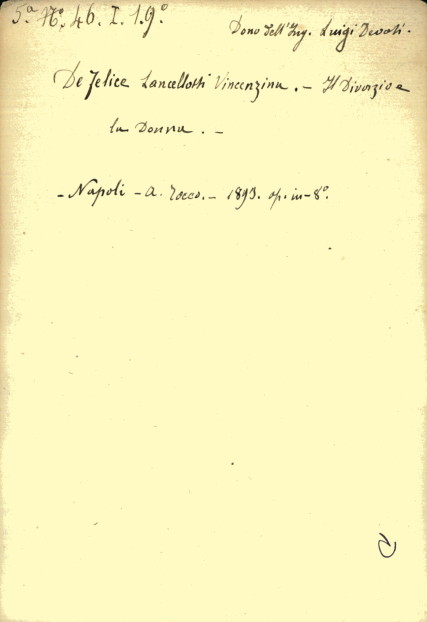 5ª Nº. 46. I. 19º
Dono dell'Ing. Luigi Devoti.
De Felice Lancellotti Vincenzina. - Il Divorzio e
la Donna. -
- Napoli - A. Tocco. - 1893. op. in-8º.